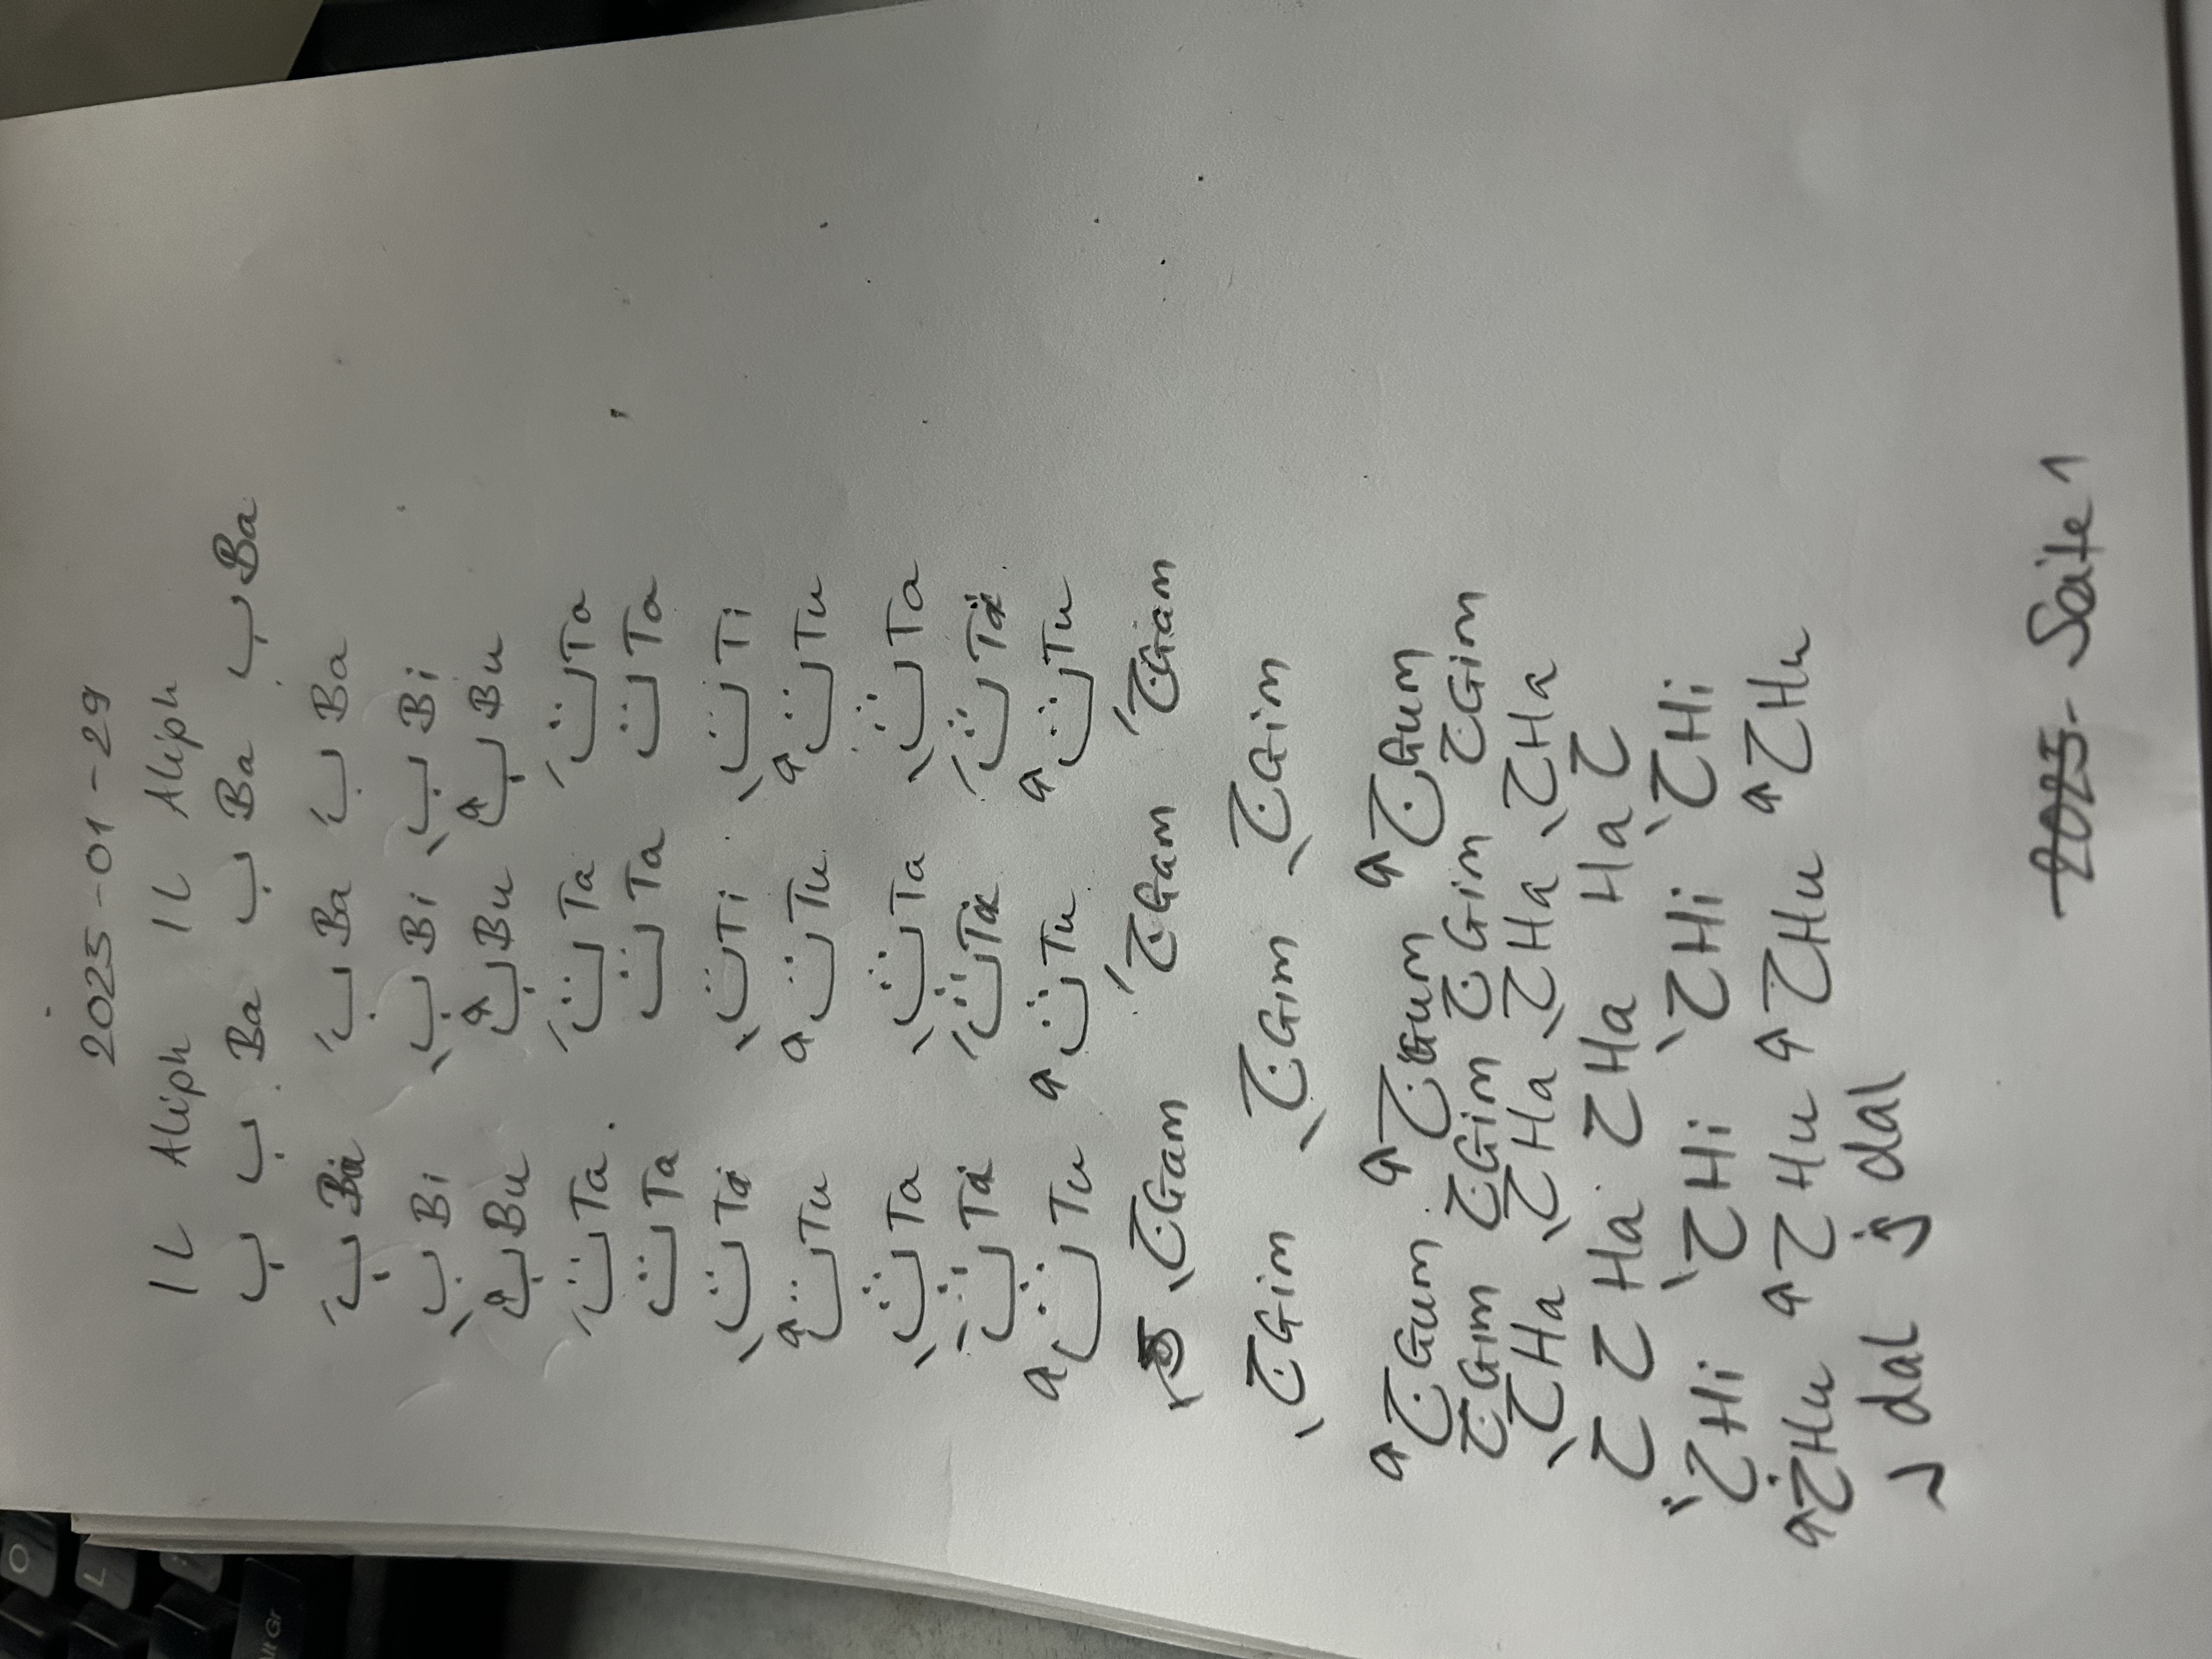 2025-01-29
ا ل Aliph ا ل Aliph ا ل Aliph
ب ب Ba ب Ba ب Ba
بَ Ba بَ Ba بَ Ba
بِ Bi بِ Bi بِ Bi
بُ Bu بُ Bu بُ Bu
تَ Ta تَ Ta تَ Ta
ت Ta ت Ta ت Ta
تِ Ti تِ Ti تِ Ti
تُ Tu تُ Tu تُ Tu
ثِ Ta ثِ Ta ثِ Ta
ثَ Ta ثَ Ta ثَ Ta
ثُ Tu ثُ Tu ثُ Tu
ج Gam جَ Gam جَ Gam
جِ Gim جِ Gim جِ Gim
جُ Gum جُ Gum جُ Gum
ج Gim ج Gim ج Gim ج Gim
حِ Ha حِ Ha حِ Ha حِ Ha
ح ح Ha ح Ha Ha ح
ح Hi ح Hi ح Hi ح Hi
حُ Hu حُ Hu حُ Hu حُ Hu
د dal ذ dal
2025- Seite 1